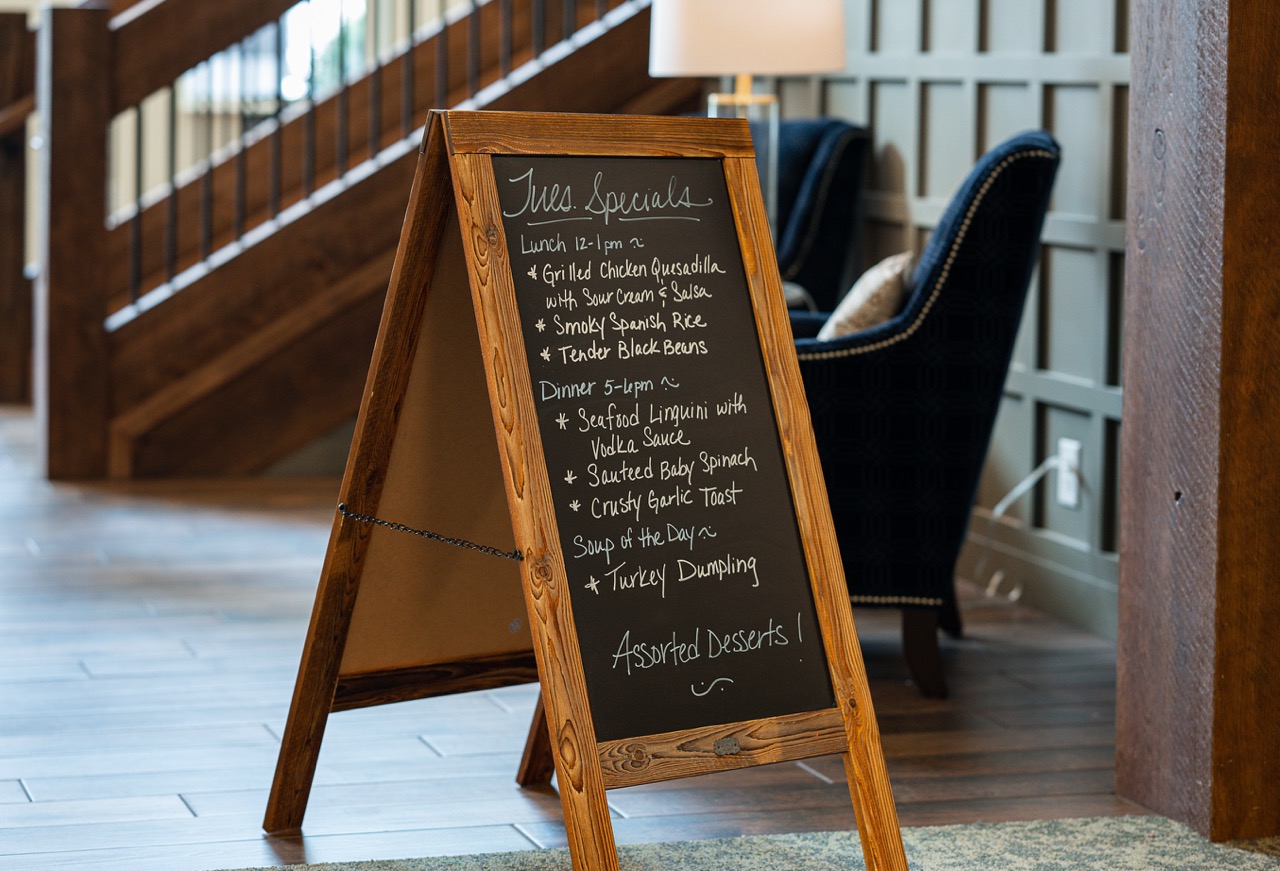 Tues. Specials
Lunch 12-1pm ~
* Grilled Chicken Quesadilla
with Sour Cream & Salsa
* Smoky Spanish Rice
* Tender Black Beans
Dinner 5-6pm ~
* Seafood Linguini with
Vodka Sauce
* Sauteed Baby Spinach
* Crusty Garlic Toast
Soup of the Day ~
* Turkey Dumpling
Assorted Desserts!